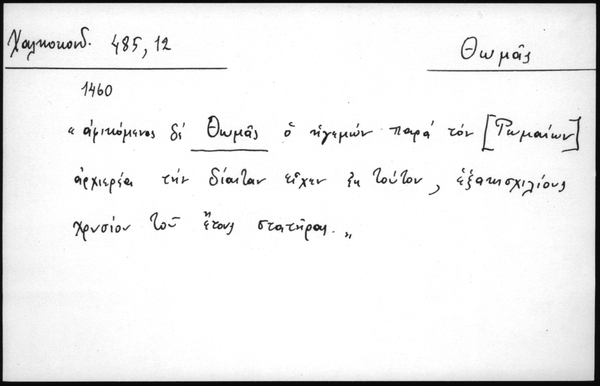 Χαλκοκονδ. 485,12
Θωμᾶς
1460
« ἀφικόμενος δέ Θωμᾶς ὁ ἡγεμών παρά τόν [Ρωμαίων]
ἀρχιερέα τήν δίαιταν εἶχεν ἐκ τούτου, ἑξακισχιλίους
χρυσίου τοῦ ἔτους στατῆρας. »